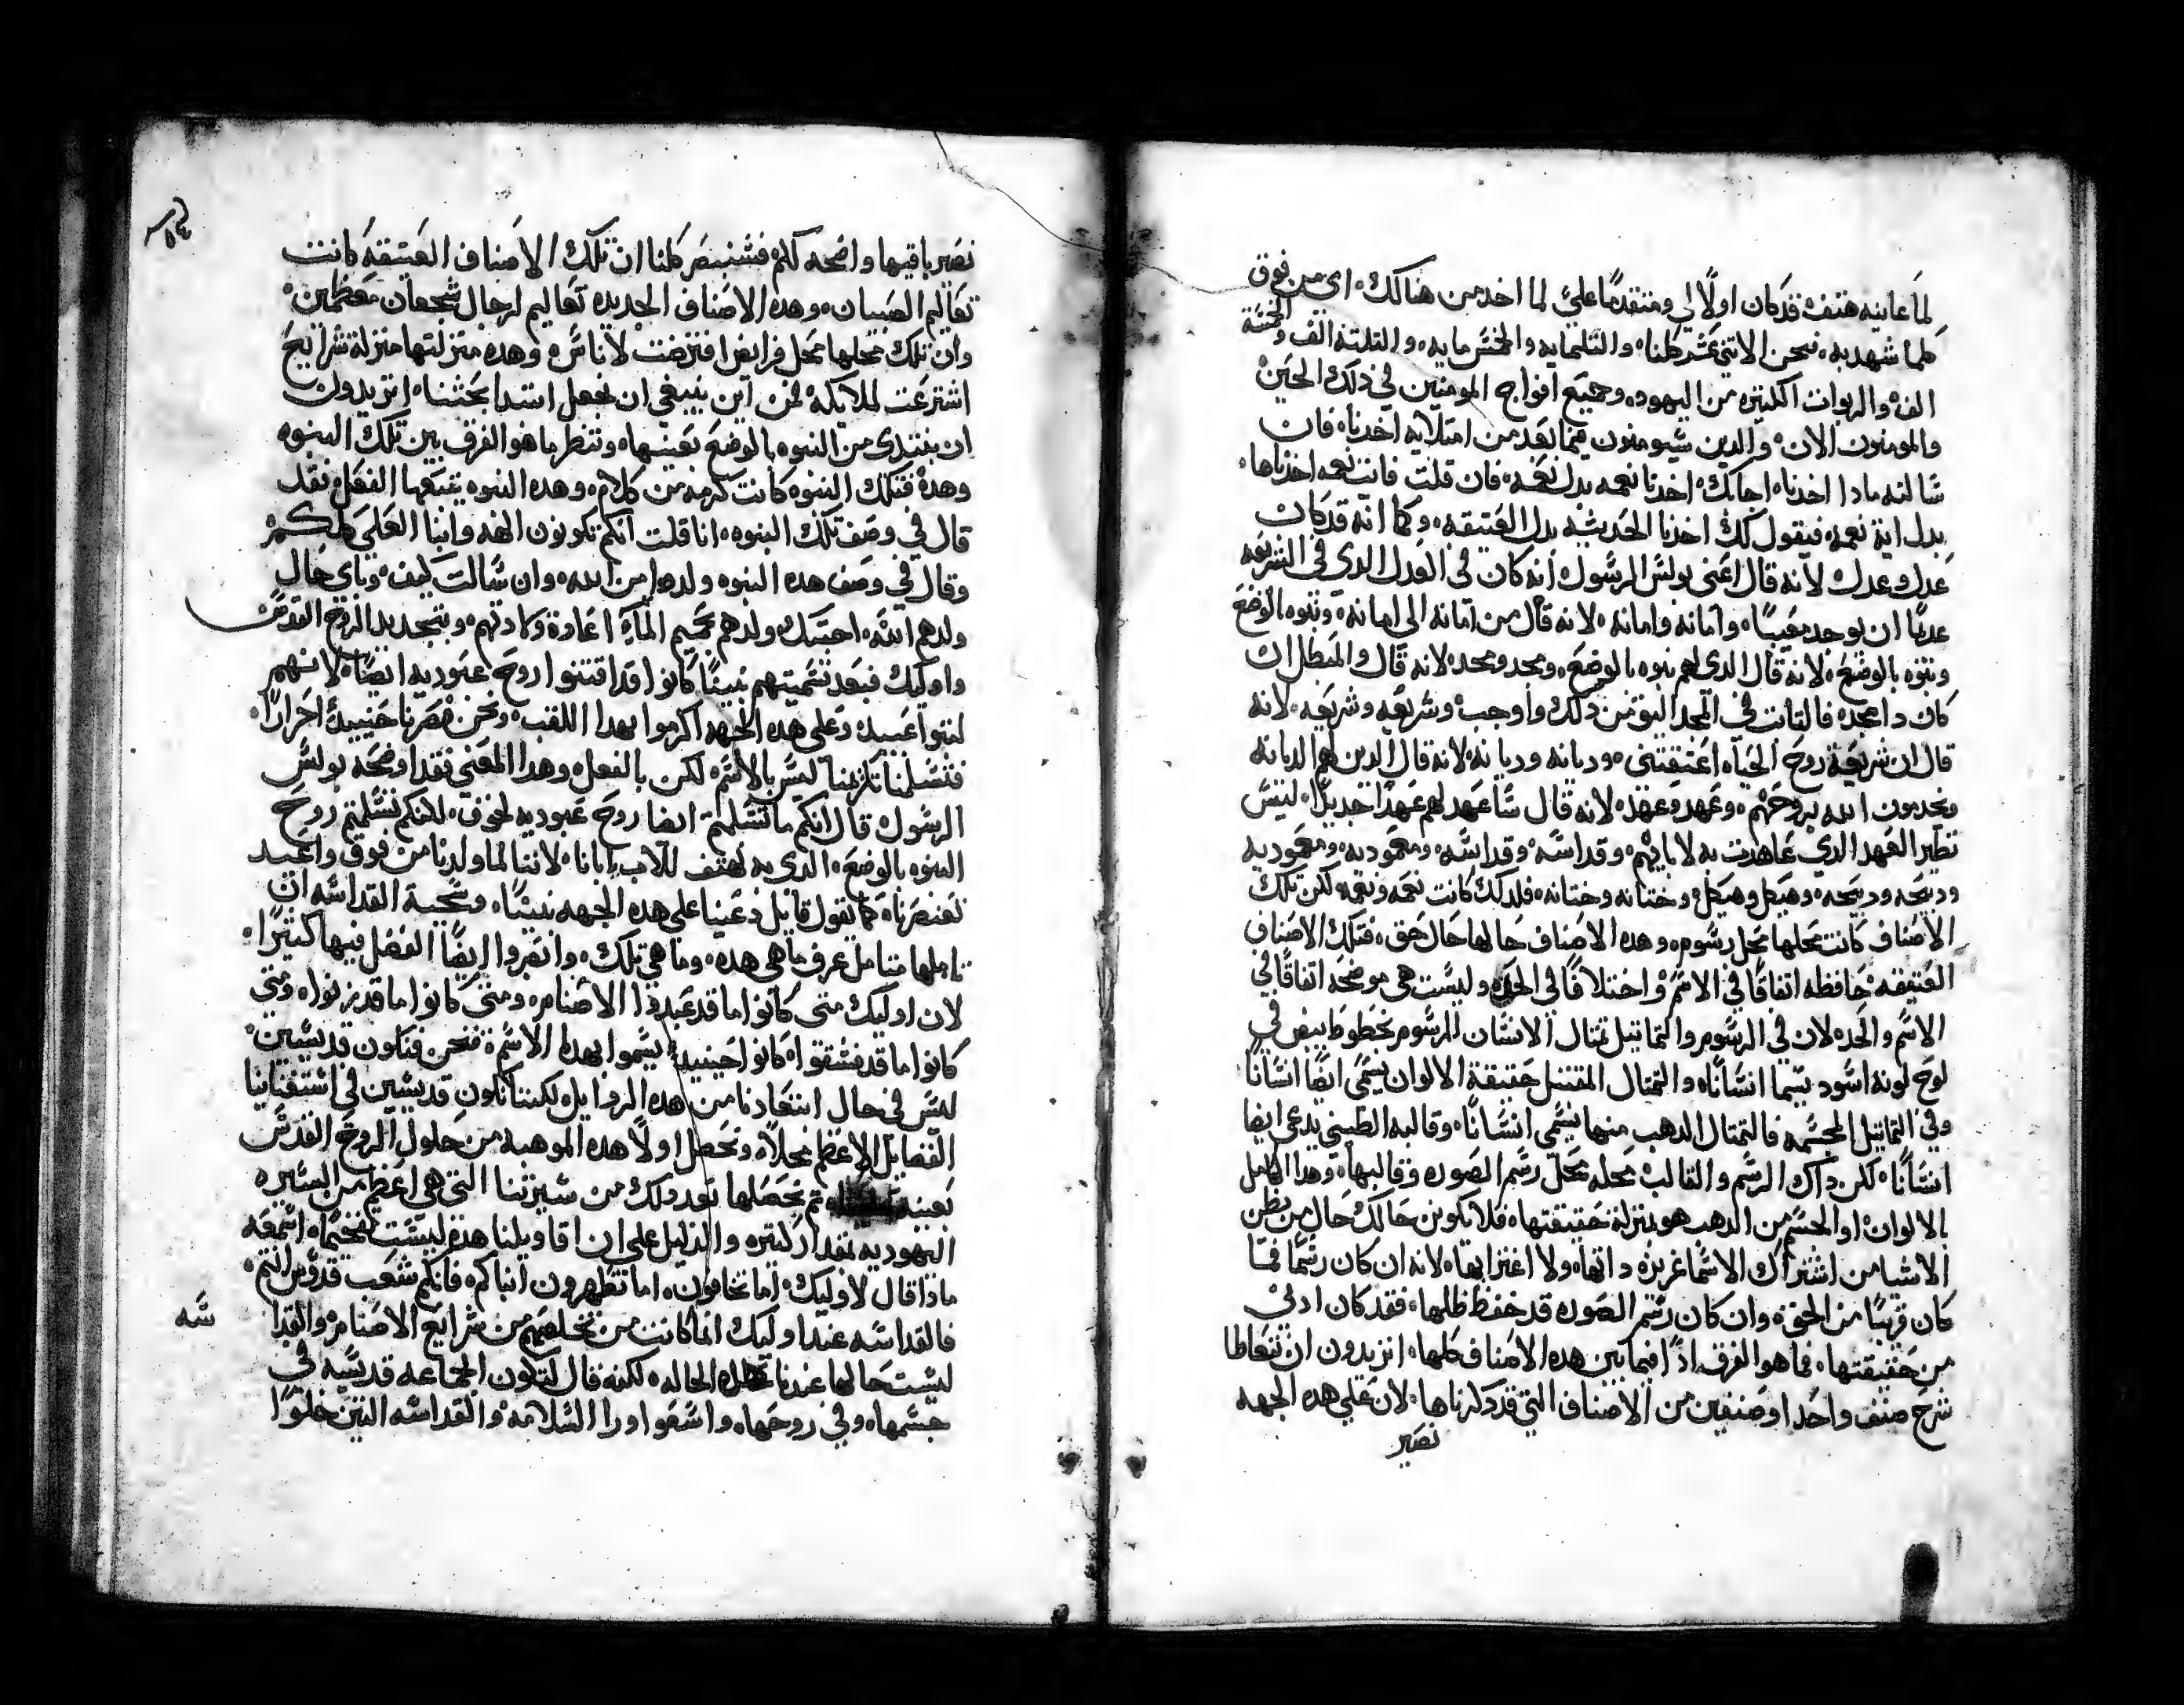 لما عاينه هتف قد كان اولًا لي ومتقدمًا عليَّ لما اخد من هنالك اي من فوق
كلما شهد به نحن الاتني عشر كلنا والتلتمايه والخمس مايه والتلتة الف والخمسة
الف والربوات الكتيره من اليهود وجميع افواج المومنين في ذلك الحين
والمومنون الان والدين سيومنون فيما بعد من امتلايه اخدنا فان
سالته مادا اخدنا اجابك اخدنا نعمه بدل نعمه فان قلت فايت نعمه اخدناها
بدل اية نعمه فيقول لك اخدنا الحديثه بدل العتيقه وكما انه قد كان
عدل وعدل لانه قال اعني بولس الرسول انه كان في العدل الدى في الشريعه
عدمًا ان يوجد معيبًا وامانه وامانه لانه قال من امانه الى امانة وبنوه بالوضع
وبنوه بالوضع لانه قال الدى لهم بنوه بالوضع ومجد ومجد لانه قال والمبطل ان
كان دا مجد فالتابت في المجد اليق من دلك واوجب وشريعه وشريعه لانه
قال ان شريعة روح الحياه اعتقتني وديانه وديانه لانه قال الدين لهم الديانه
ويخدمون الله بروحهم وعهد وعهد لانه قال ساعهد لهم عهدًا جديدًا ليس
نظير العهد الدي عاهدت به لابايهم وقداسه وقداسه ومعموديه ومعموديه
ودبيحه ودبيحه وهيكل وهيكل وختانه وختانه فلدلك كانت نعمه ونعمه لكن تلك
الاصناف كانت محلها محل رسوم وهده الاصناف حالها حال حق فتلك الاصناف
العتيقه حافظه اتفاقًا في الاسم واختلافًا في الحد وليست هي موضحه اتفاقًا في
الاسم والحد لان في الرسوم والتماتيل تمتال الانسان المرسوم بخطوط بيض في
لوح لونه اسود يسما انسانًا والتمتال المقتبل حقيقة الالوان يسمى ايضًا انسانًا
وفي التماتيل المجسمه فالتمتال الدهب منها يسمى انسانًا وقالبه الطيني يدعى ايضا
انسانًا لكن داك الرسم والقالب محله محل رسم الصوره وقالبها وهدا الكامل
بالالوان او الجسم من الدهب هو بمنزلة حقيقتها فلا يكونن حالك حال من يظن
الاشيا من اشتراك الاسما غريزه داتها ولا اغترابها لانه ان كان رسمًا فما
كان قريبًا من الحق وان كان رسم الصوره قد حفظ ظلها فقد كان ادنى
من حقيقتها فما هو الفرق ادًا فيما بين هده الاصناف كلها اتريدون ان نتعاطا
شرح صنف واحد او صنفين من الاصناف التي قد دكرناها لان على هده الجهه
تصير
تصير باقيها واضحه لكم فسنبصر كلنا ان تلك الاصناف العتيقه كانت
تعاليم الصبيان وهده الاصناف الجديده تعاليم لرجال شجعان معظمين
وان تلك محلها محل فرايض افترضت لاناس وهده منزلتها منزلة شرايع
اشترعت لملايكه فمن اين ينبغي ان نجعل ابتدا بحثنا اتريدون
ان نبتدى من البنوه بالوضع بعينها وننظر ما هو الفرق بين تلك البنوه
وهدة فتلك البنوه كانت كرمه من كلام وهده البنوه يتبعها الفعل فقد
قال في وصف تلك البنوه انا قلت انكم تكونون الهه وابنا العلي كلكم
وقال في وصف هده البنوه ولدوا من الله وان سالت كيف وباي حال
ولدهم الله اجبتك ولدهم بحميم الماء اعادة ولادتهم وبتجديد الروح القدس
واوليك فبعد تسميتهم بنينًا كانوا قد اقتنوا روح عبوديه ايضًا لانهم
لبتوا عبيد وعلى هده الجهه اكرموا بهدا اللقب ونحن فصرنا حينيدٍ احرارًا
فتسلمنا تكرمنا ليس بالاسم لكن بالفعل وهدا المعني فقد اوضحه بولس
الرسول قال انكم ما تسلمتم ايضا روح عبوديه لخوف لكنكم تسلمتم روح
البنوه بالوضع الدي به نهتف للاب ابانا لاننا لما ولدنا من فوق واعيد
تعنصرنا كما نقول قايل دعينا على هده الجهه بنينًا وسجية القداسه ان
تاملها متامل عرف ما هى هده وما هي تلك وابصروا ايضًا الفضل فيها كتيرًا
لان اوليك متى كانوا ما قد عبدوا الاصنام ومتى كانوا ما قد زنوا ومتى
كانوا ما قد فسقوا كانوا حينيدٍ يسموا بهدا الاسم فنحن فنكون قديسين
ليس في حال ابتعادنا من هده الردايل لكننا نكون قديسين في استقتناينا
الفضايل الاعظم محلاً ونحصل اولاً هده الموهبه من حلول الروح القدس
بعينه تم نحصلها بعد دلك من سيرتنا التي هي اعظم من السيره
اليهوديه بمقدار كتير والدليل على ان اقاويلنا هدة ليست تفخيمًا اسمعه
مادا قال لاوليك اما تخافون اما تطهرون ابناكم فانكم شعب قدوس انتم
فالقداسه عند اوليك انما كانت من تخلصهم من شرايع الاصنام والقدا
سه
ليست حالها عندنا هده الحاله لكنه قال لتكون الجماعه قديسه في
جسمها وفي روحها واسعوا ورا السلامه والقداسه التين خلوًا